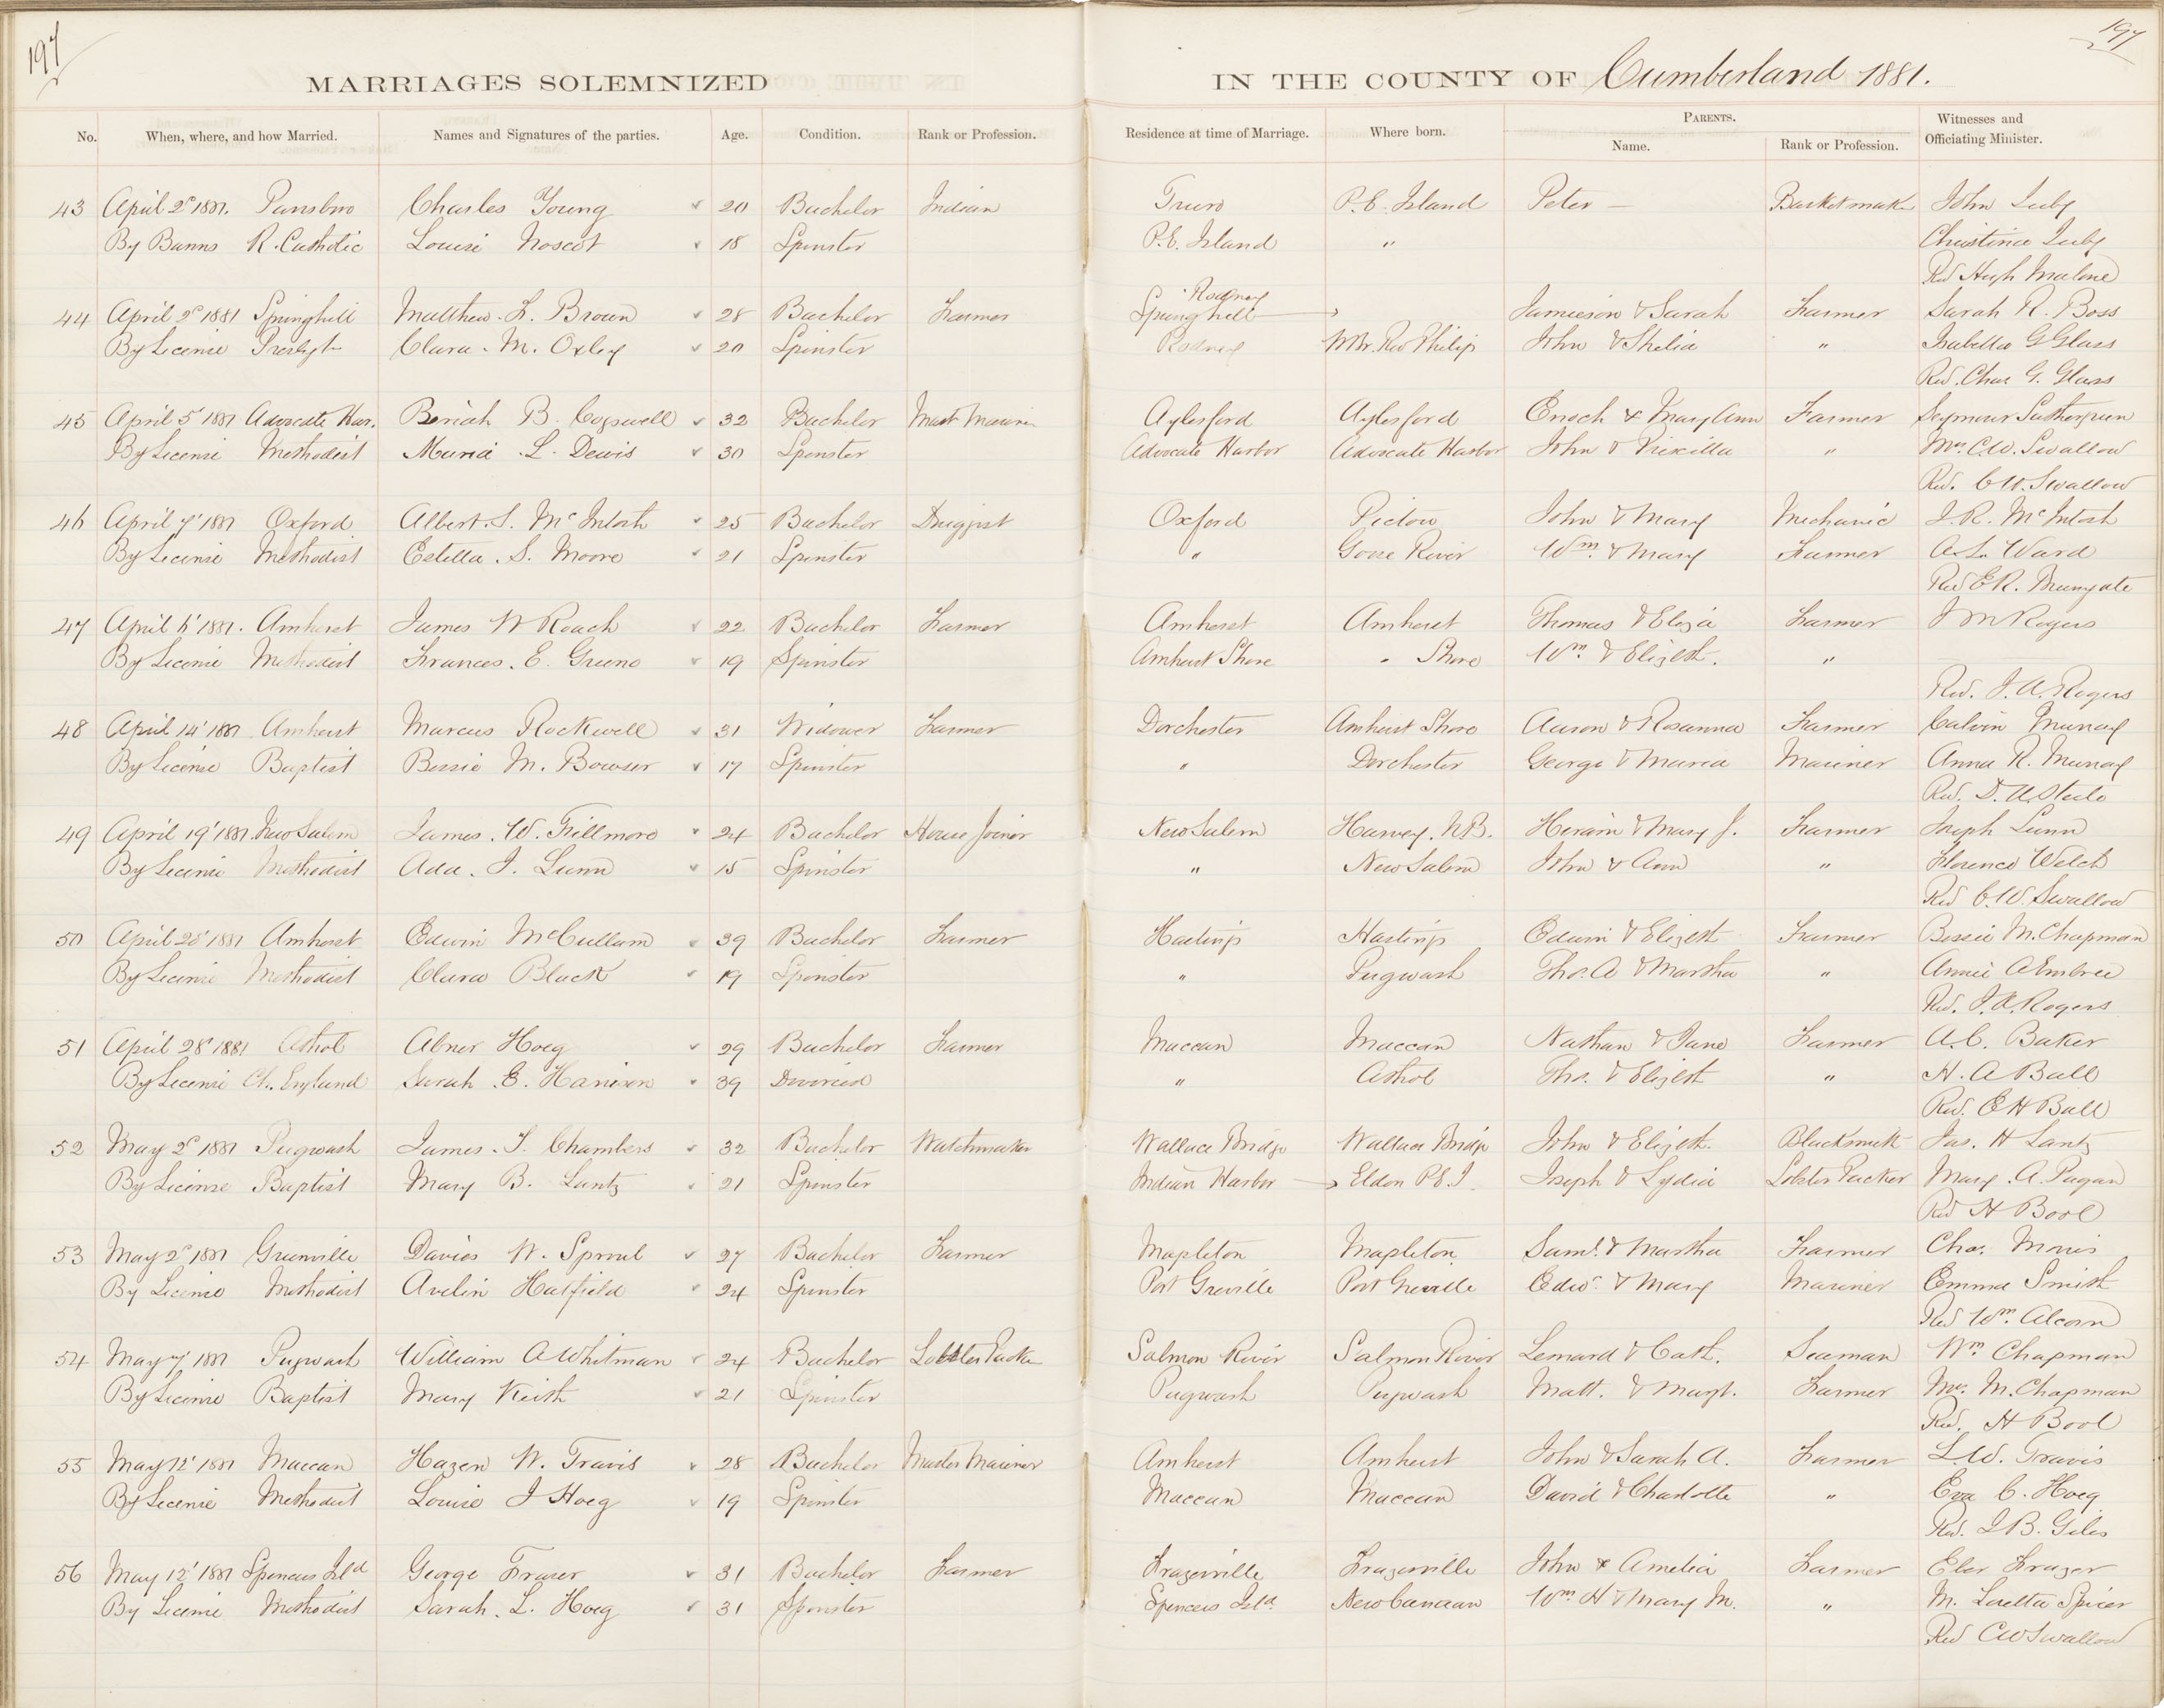 197
197
MARRIAGES SOLEMNIZED IN THE COUNTY OF Cumberland 1881.
No. When, where, and how Married. Names and Signatures of the parties. Age. Condition. Rank or Profession. Residence at time of Marriage. Where born. PARENTS. Name. Rank or Profession. Witnesses and Officiating Minister.
43 April 2d 1881. Parrsboro Charles Young 20 Bachelor Indian Truro P.E. Island Peter — Basketmaker John Luby
By Banns R. Catholic Louise Noscot 18 Spinster P.E. Island " Christina Luby
Rev Hugh Malone
Rodney
44 April 2d 1881 Springhill Matthew. L. Brown 28 Bachelor Farmer Springhill Jamieson & Sarah Farmer Sarah R. Boss
By License Presbytn Clara. M. Oxley 20 Spinster Rodney Philip John & Shelia " Isabella G Glass
Rev. Chas G. Glass
45 April 5' 1881 Advocate Har. Beriah B. Cogswell 32 Bachelor Mast Mariner Aylesford Aylesford Enoch & Mary Ann Farmer Seymour
By License Methodist Maria L. Dewis 30 Spinster Advocate Harbor Advocate Harbor John & Priscilla " Mrs. C.W. Swallow
Rev. C.W. Swallow
46 April 7' 1881 Oxford Albert. S. McIntosh 25 Bachelor Druggist Oxford Pictou John & Mary Mechanic J. R. McIntosh
By License Methodist Estella. S. Moore 21 Spinster " Goose River Wm. & Mary Farmer A. L. Ward
Rev E R.
47 April 6' 1881. Amherst James W Roach 22 Bachelor Farmer Amherst Amherst Thomas & Eliza Farmer J M Rogers
By License Methodist Frances. E. Greeno 19 Spinster Amherst Shore " Shore Wm. & Elizbth. "
Rev. J. A. Rogers
48 April 14' 1881 Amherst Marcus Rockwell 31 Widower Farmer Dorchester Amherst Shore Aaron & Rosanna Farmer Calvin Murray
By License Baptist Bessie M. Bowser 17 Spinster " Dorchester George & Maria Mariner Anna R. Murray
Rev. D. A. Steele
49 April 19' 1881. New Salem James. W. Fillmore 24 Bachelor House Joiner New Salem Harvey. N.B. Heraim & Mary J. Farmer Joseph Lunn
By License Methodist Ada. J. Lunn 15 Spinster " New Salem John & Ann " Florence Welch
Rev C. W. Swallow
50 April 28' 1881 Amherst Edwin McCullam 39 Bachelor Farmer Hastings Hastings Edwin & Elizbth Farmer Bessie M. Chapman
By License Methodist Clara Black 19 Spinster " Pugwash Thos. A & Martha " Annie A Embree
Rev. J. A. Rogers
51 April 28' 1881 Athol Abner Hoeg 29 Bachelor Farmer Maccan Maccan Nathan & Jane Farmer A. C. Baker
By License Ch. England Sarah. E. Harrison 39 Divorced " Athol Thos. & Elizbth " H. A Ball
Rev. E H Ball
52 May 2d 1881 Pugwash James. T. Chambers 32 Bachelor Watchmaker Wallace Bridge Wallace Bridge John & Elizbth. Blacksmith Jas. H Lantz
By License Baptist Mary B. Lantz 21 Spinster Indian Harbor Eldon P.E.I. Joseph & Lydia Lobster Packer Mary. A. Pugan
Rev H Bool
53 May 2d 1881 Greenville Davies W. Sproul 27 Bachelor Farmer Mapleton Mapleton Saml. & Martha Farmer Chas. Morris
By License Methodist Avelin Hatfield 24 Spinster Port Greville Port Greville Edwd. & Mary Mariner Emma Smith
Rev Wm. Alcorn
54 May 7' 1881 Pugwash William A Whitman 24 Bachelor Lobster Packer Salmon River Salmon River Lenard & Cath. Seaman Wm Chapman
By License Baptist Mary Keith 21 Spinster Pugwash Pugwash Matt. & Margt. Farmer Mrs. M. Chapman
Rev. H Bool
55 May 12' 1881 Maccan Hazen W. Travis 28 Bachelor Master Mariner Amherst Amherst John & Sarah A. Farmer L.W. Travis
By License Methodist Louise J Hoeg 19 Spinster Maccan Maccan David & Charlotte " Eva C. Hoeg
Rev. J B. Giles
56 May 12' 1881 Spencers Ild George Fraser 31 Bachelor Farmer Frazerville Frazerville John & Amelia Farmer Frazer
By License Methodist Sarah. L. Hoeg 31 Spinster Spencers Ild. New Canaan Wm H & Mary M. " M. Luella Spicer
Rev C W Swallow